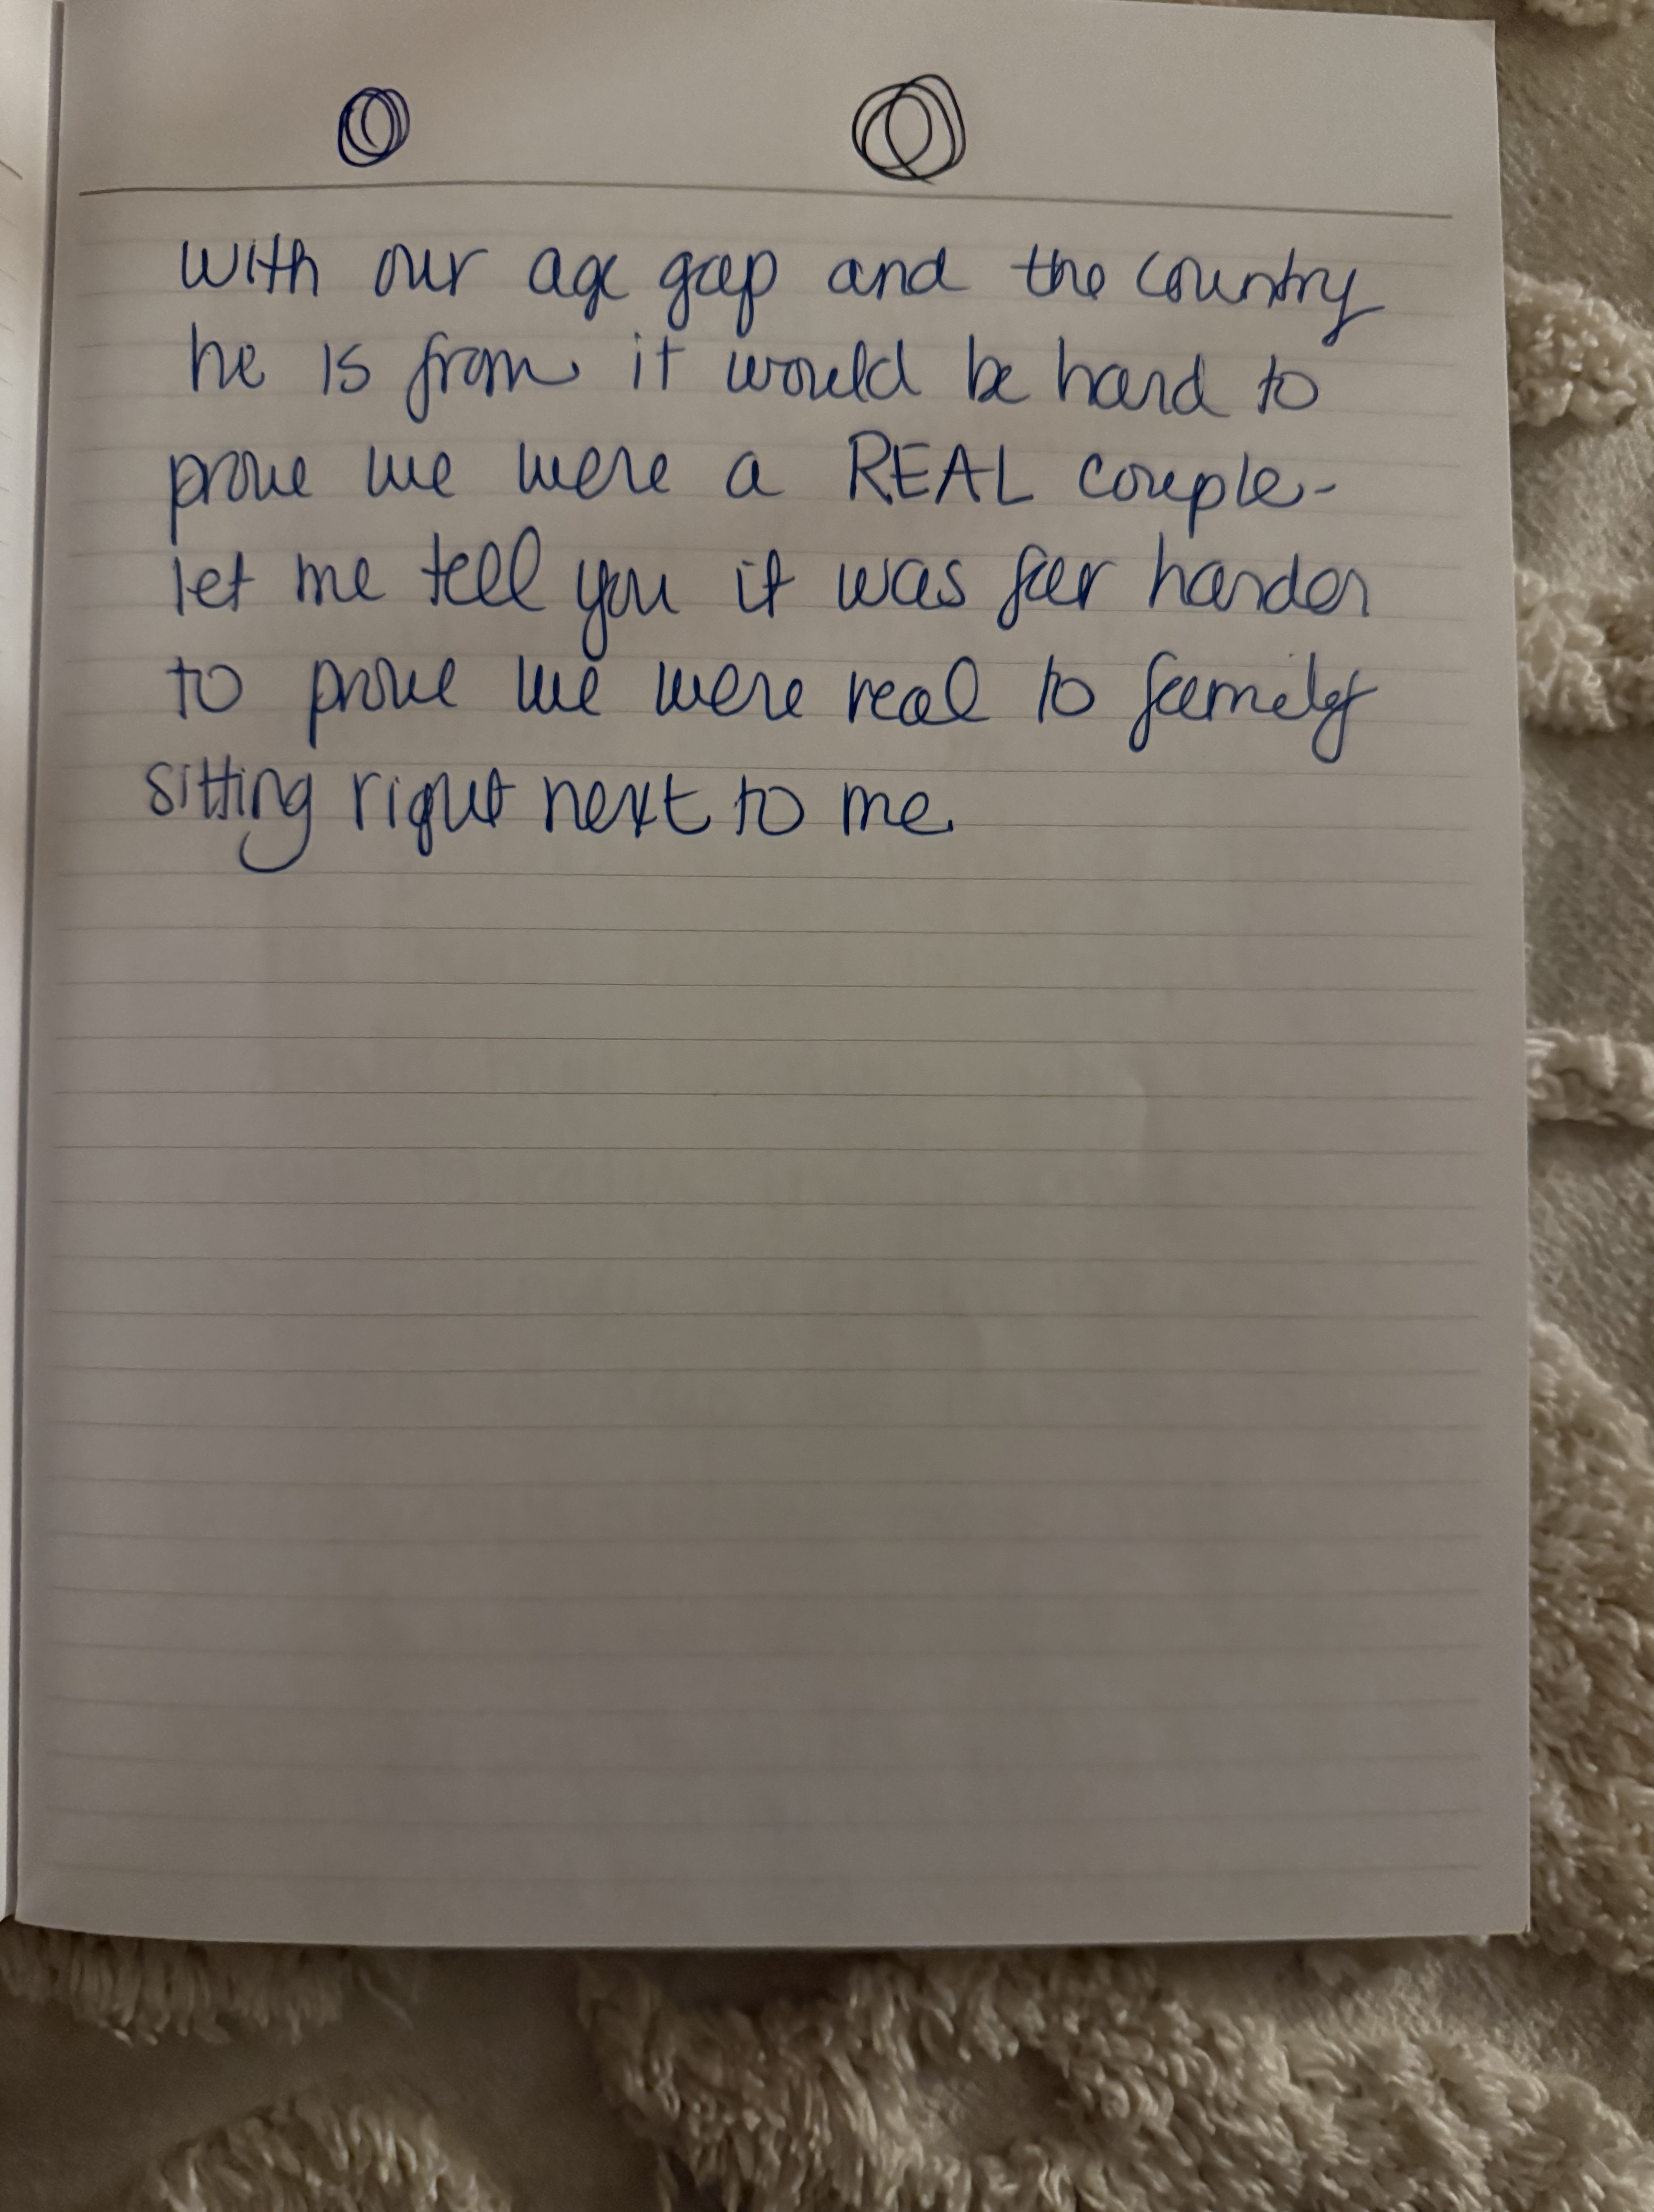 with our age gap and the country
he is from it would be hard to
prove we were a REAL couple-
let me tell you it was far harder
to prove we were real to family
sitting right next to me.